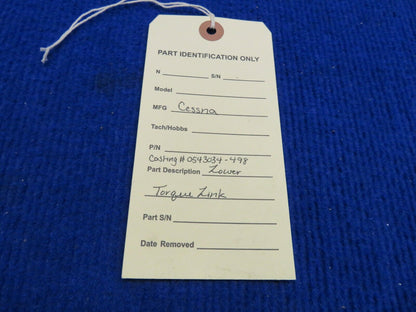 PART IDENTIFICATION ONLY
N S/N
Model
MFG Cessna
Tach/Hobbs
P/N
Casting # 0543034-498
Part Description Lower
Torque Link
Part S/N
Date Removed